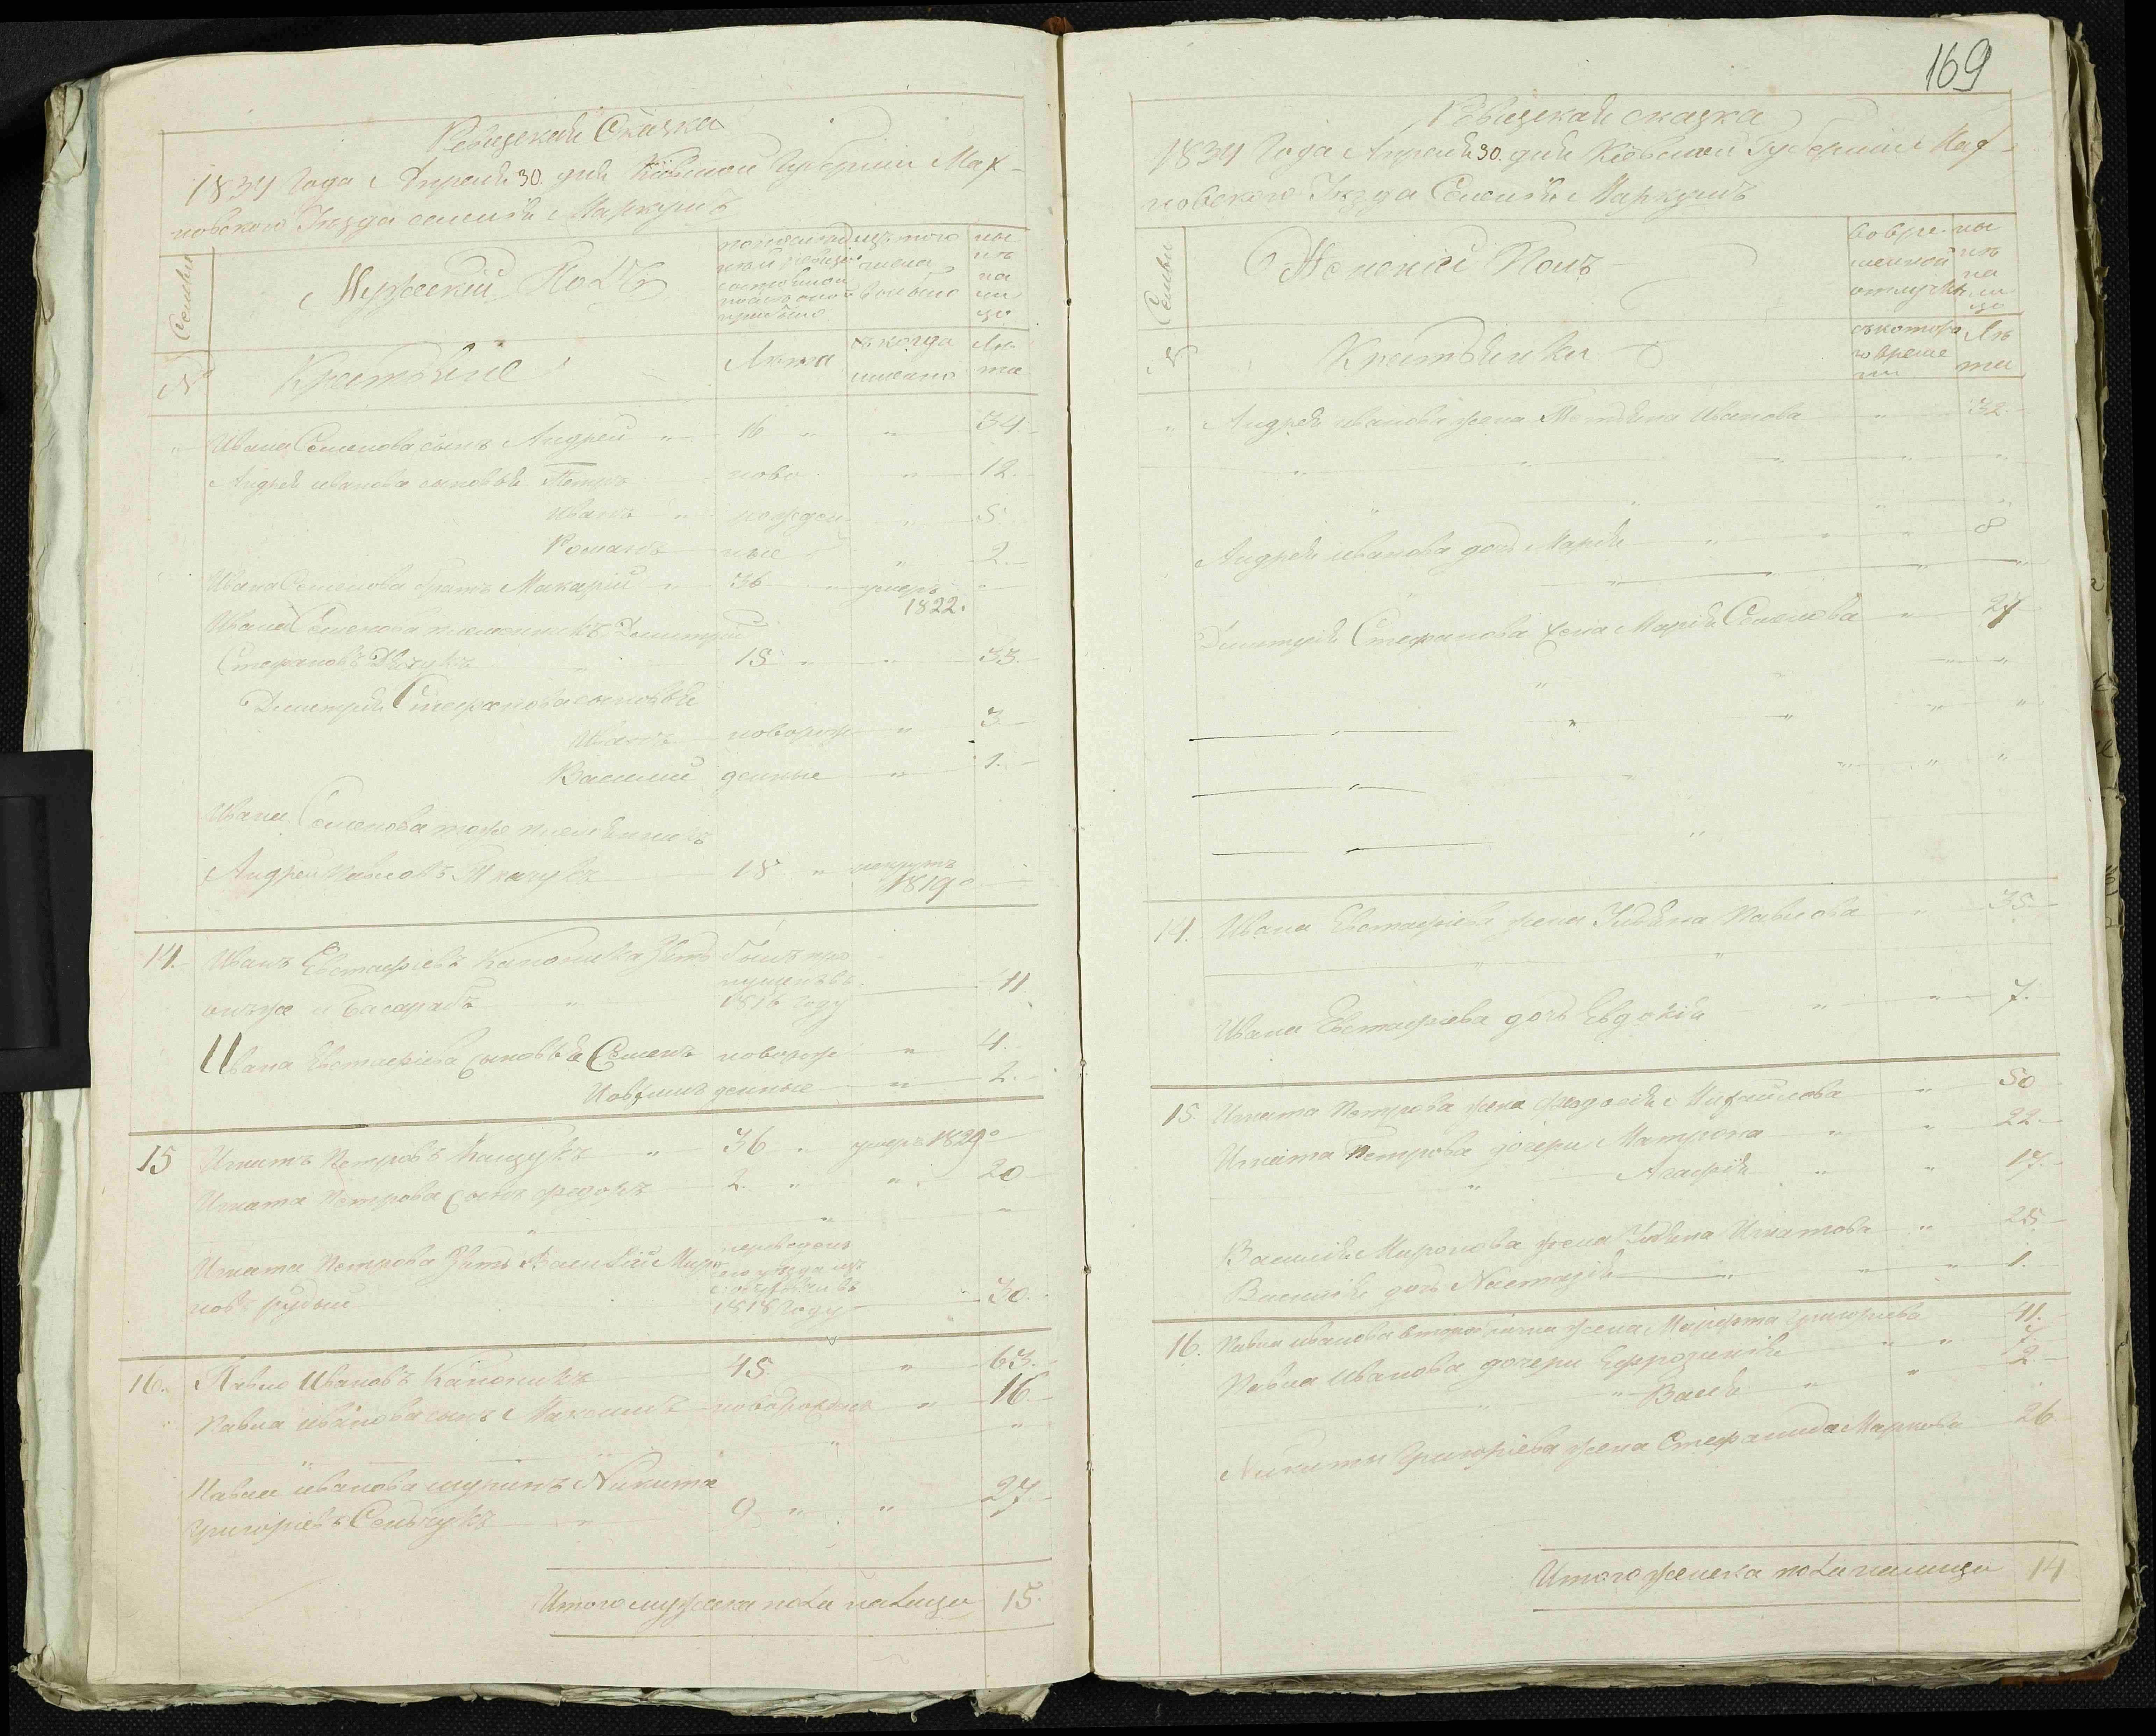 Ревизская Сказка
1834 Года Апреля 30. дня Кіевской Губерніи Мах-
новского Уезда селенія Маркушъ
№ Семьи
Мужескій Полъ
по последней ревизіи состояло и после оной прибыло
изъ того числа выбыло
ныне на лицо
Крестьяне
Лета
когда именно
Лета
Ивана Семенова сынъ Андрей " 16 " " 34
Андрея иванова сыновья Петръ ново " 12.
Иванъ " рожден " 5
Романъ ные " 2.
Ивана Семенова братъ Макарій " 36 " умеръ
1822.
Ивана Семенова племянникъ Димитрій
Стефановъ 15 " " 33.
Димитрія Стефанова сыновья
Иванъ новорож " 3
Василий денные " 1.
Ивана Семенова тоже племянникъ
Андрей Павловъ Ткачукъ 18 " рекрутъ
1819о
14. Иванъ Евстафіевъ Каноника Зять былъ про
онъ же и Басарабъ " пущенъ въ 1816 году 41
Ивана Евстафіева сыновья Семенъ новорож " 4.
денные " 2.
15 Игнатъ Петровъ Кащукъ " 36 " умеръ 1829о
Игната Петрова сынъ Федоръ 2. " " 20
Игната Петрова Зять Василій Миро
новъ рудый 1818 году 30.
16. Павло Ивановъ Каноникъ 45 " 63.
Павла иванова сынъ Максимъ новорожден " 16
Павла иванова шуринъ Никита
Григоріевъ Сеньчукъ " 9 " " 27.
Итого мужеска пола налицо 15.
169
Ревизская сказка
1834 Года Апреля 30. дня Кіевской Губерніи Мах-
новского Уезда Селенія Маркушъ
№ Семьи
Женскій Полъ
во временной отлучке
ныне на лицо
Крестьянки
съ которого времени
Лета
" Андрея иванова жена Татіяна Иванова " 32.
Андрея иванова дочь Марія " " " 8
Димитрія Стефанова жена Марія Семенова " 27
14. Ивана Евстафіева жена Уліяна Павлова " 35.
Ивана Евстафіева дочь Евдокія " " 7.
15 Игната Петрова жена Феодосія Михайлова " 50
Игната Петрова дочери Матрона " " 22.
" Агафія " " 17.
Василія Миронова жена Уліяна Игнатова " 25
Василія дочь Настазія " " " 1.
16. Павла иванова второбрачна жена Марфта Григорьева 41.
Павла Иванова дочери Ефрозинія " " 7
" Васса " " 2.
Никиты Григоріева жена Стефанида Маркова 26
Итого женска пола налицо 14